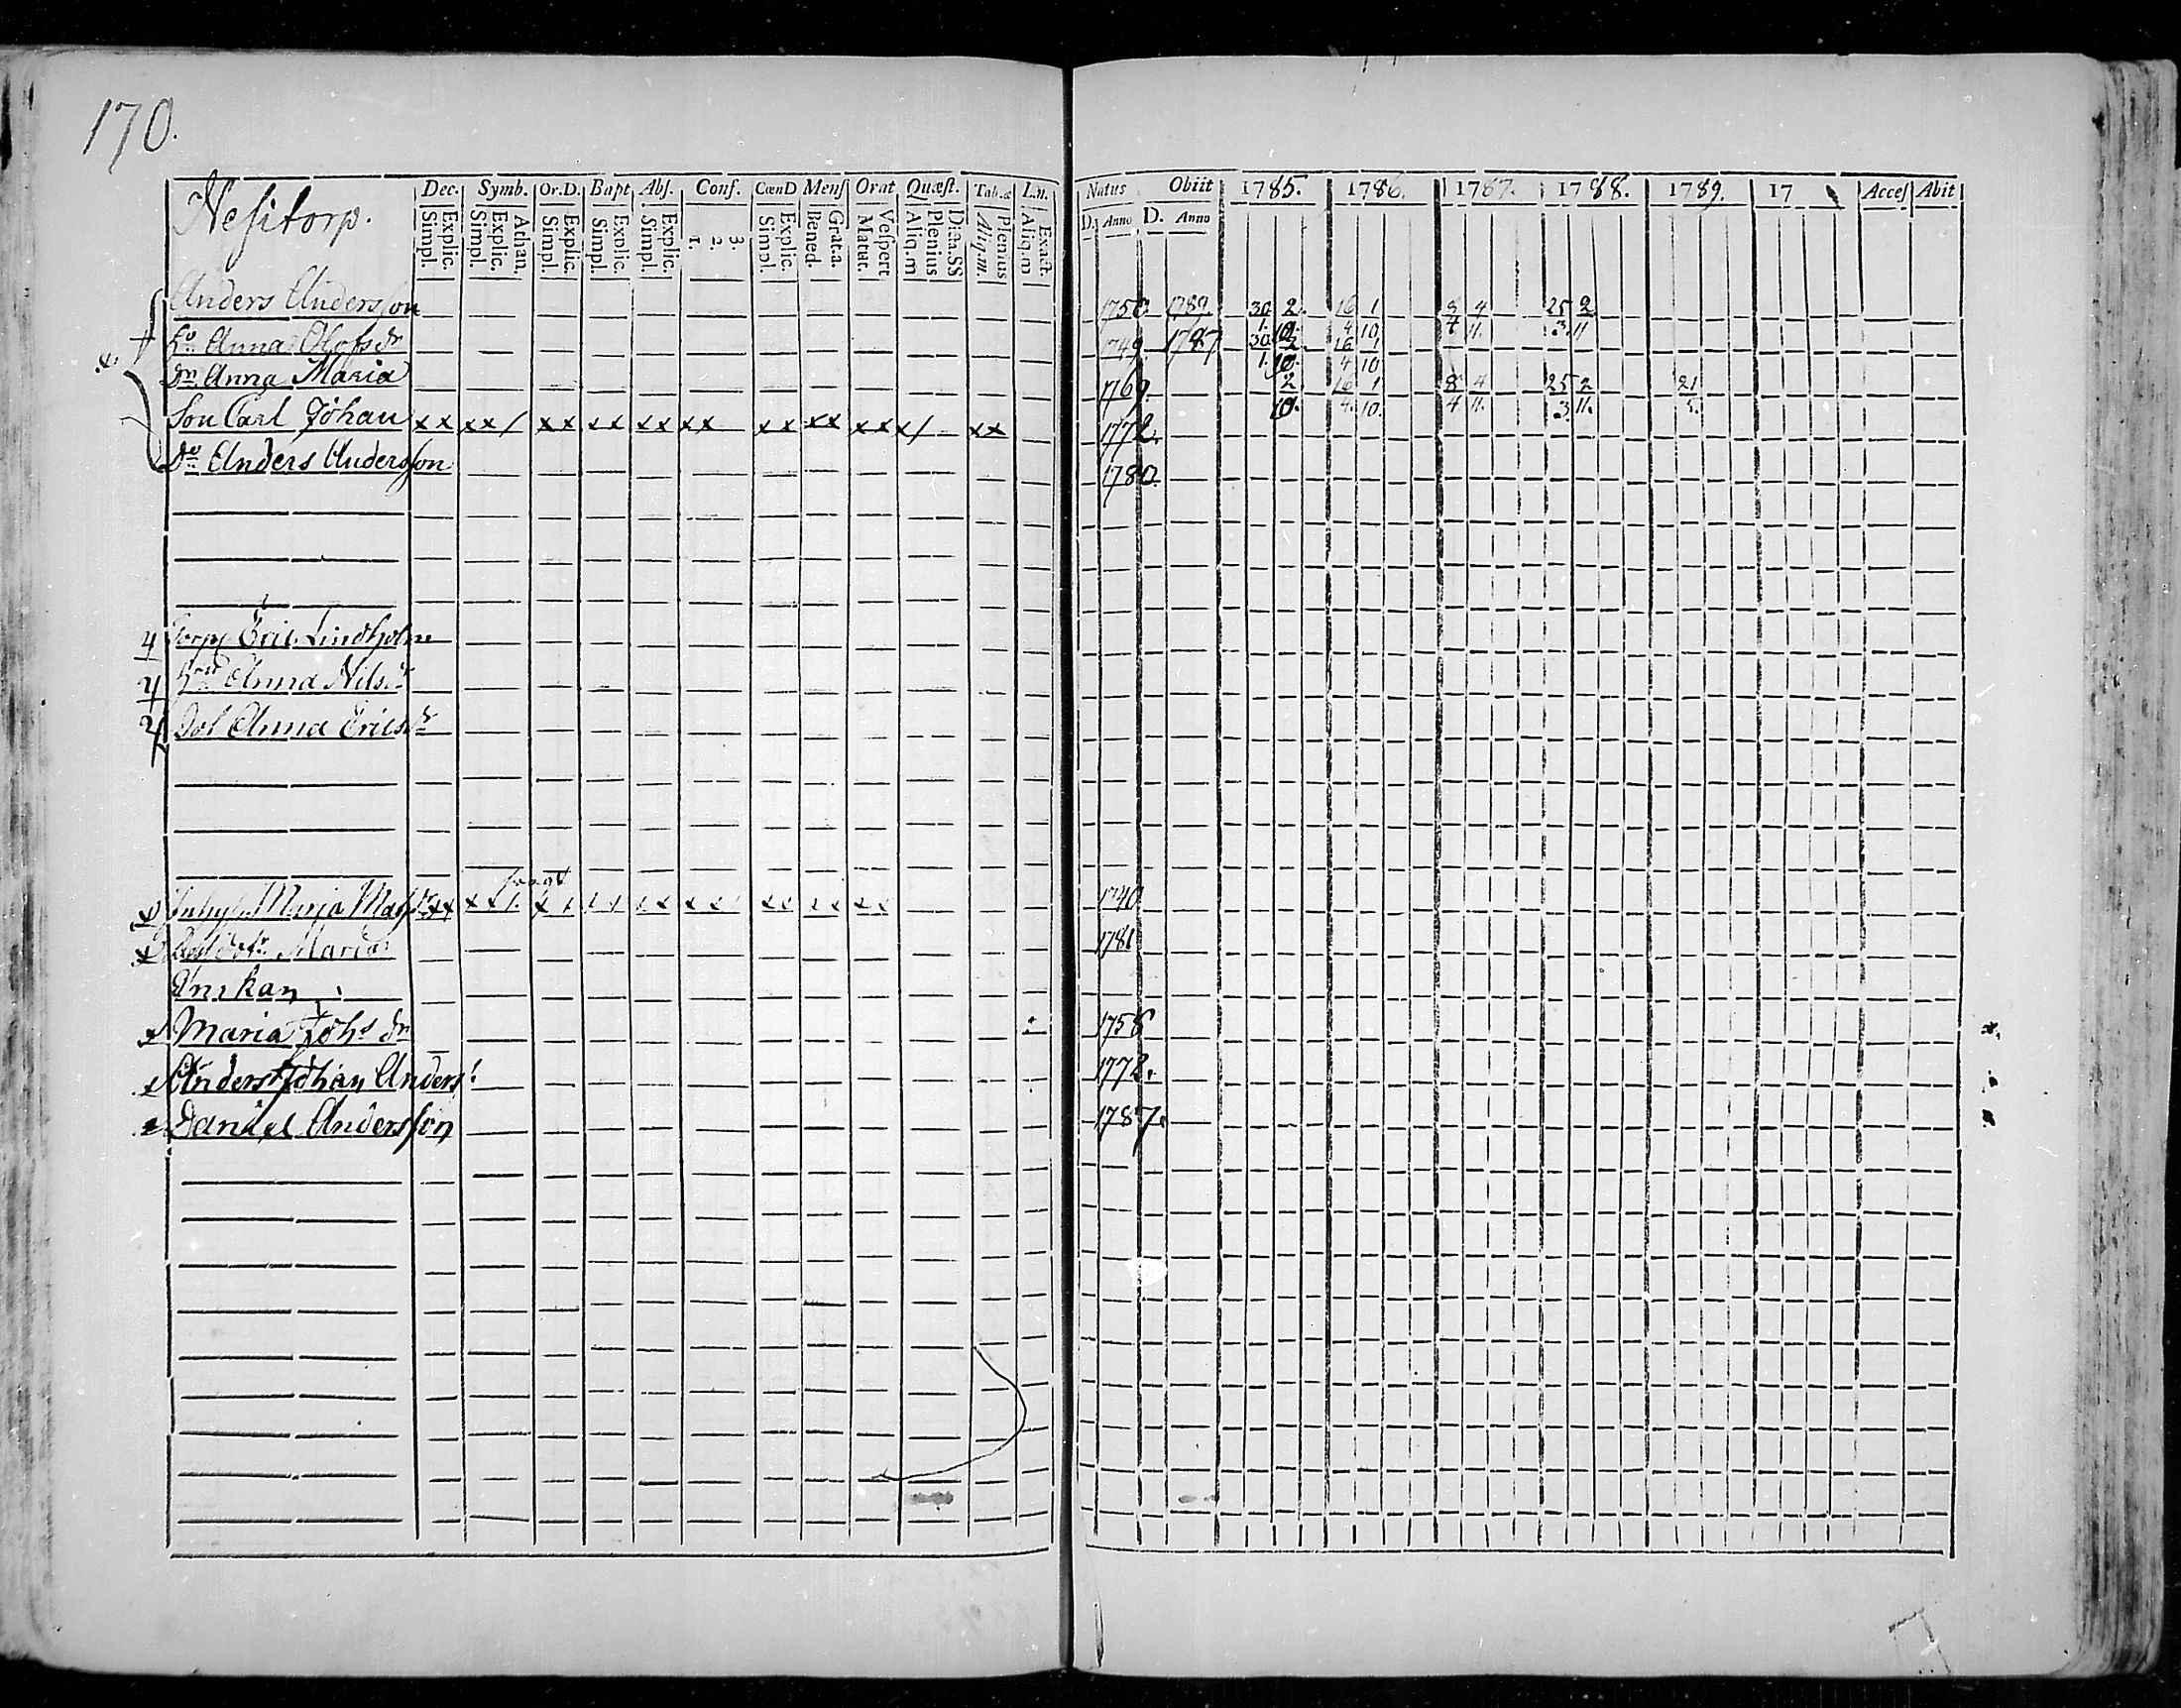 170.
Dec. Symb. Or.D. Bapt Abſ. Conf. CœnD Menſ Orat Quæſt. Tab.œ L.n. Natus Obiit 1785. 1786. 1787. 1788. 1789. 17 Acceſ Abit
Simpl. Explic. Simpl. Explic. Athan. Simpl. Explic. Simpl. Explic. Simpl. Explic. 1. 2. 3. Simpl. Explic. Bened. Grat.a. Matut. Veſpert Aliq.m Plenius Dicta.SS Aliq.m. Plenius Aliq.m Exact. D. Anno D. Anno
Neſitorp.
Anders Andersſon 1750. 1789. 30 2 16 1 8 4 25 2
1. 10. 4 10 4 11. 3. 11
Anna Olofsdr 1749 1787 30 2 16 1
1. 10. 4 10
Dr. Anna Maria 1769. 2 16 1 8 4 25 2 21
10. 4. 10. 4 11. 3 11. 5.
Son Carl Johan xx xx/ xx xx xx xx xx xx xx x/ xx 1772.
Do Anders Andersſon 1780.
4 Torp Eric Lindholm
4 Anna Nilsdr
4 Anna Ericsdr
Maria 1740
Maria 1781
Enckan
x Maria Johs dr 1758 x.
x Anders Johan Anders: 1772.
x Daniel Andersſon 1787.